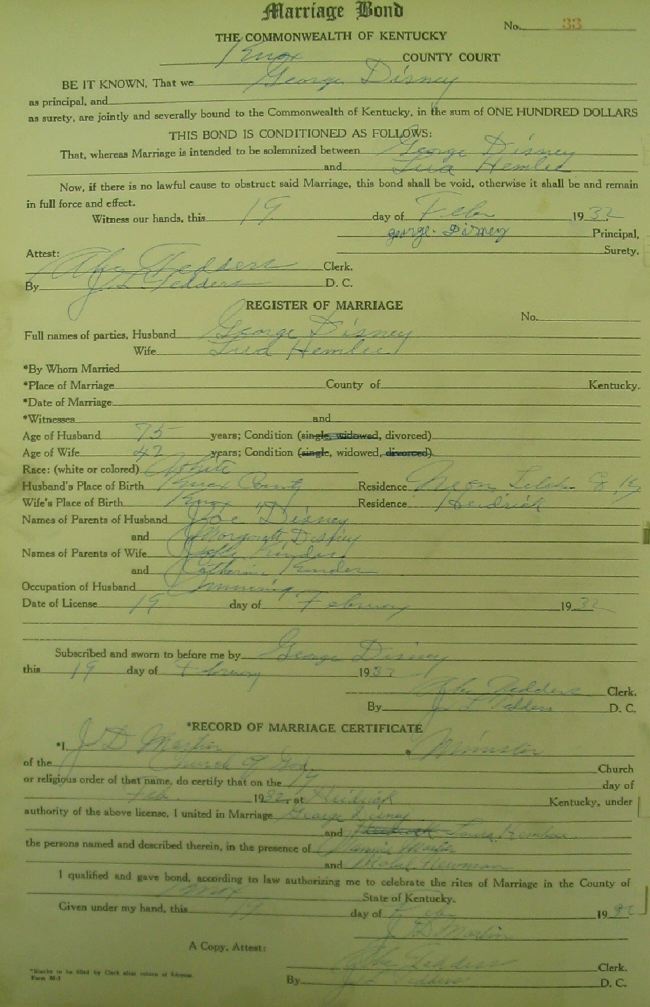 Marriage Bond
No. 33
THE COMMONWEALTH OF KENTUCKY
Knox COUNTY COURT
BE IT KNOWN, That we George Disney
as principal, and
as surety, are jointly and severally bound to the Commonwealth of Kentucky, in the sum of ONE HUNDRED DOLLARS
THIS BOND IS CONDITIONED AS FOLLOWS:
That, whereas Marriage is intended to be solemnized between George Disney
and Hemlie
Now, if there is no lawful cause to obstruct said Marriage, this bond shall be void, otherwise it shall be and remain
in full force and effect.
Witness our hands, this 19 day of Feb 1932
george Disney Principal,
Surety.
Attest:
Clerk.
By J. L. Tedders D. C.
REGISTER OF MARRIAGE
No.
Full names of parties, Husband George Disney
Wife Hemlie
*By Whom Married
*Place of Marriage County of Kentucky.
*Date of Marriage
*Witnesses and
Age of Husband 75 years; Condition (single, widowed, divorced)
Age of Wife 42 years; Condition (single, widowed, divorced)
Race: (white or colored) White
Husband's Place of Birth Knox County Residence Ky
Wife's Place of Birth Knox Residence Heidrick
Names of Parents of Husband Joe Disney
and Disney
Names of Parents of Wife
and Catherine
Occupation of Husband
Date of License 19 day of February 1932
Subscribed and sworn to before me by George Disney
this 19 day of February 1932
Tedders Clerk.
By J. L. Tedders D. C.
*RECORD OF MARRIAGE CERTIFICATE
*I, J. D. Martin Minister
of the Church of God Church
or religious order of that name, do certify that on the 19 day of
Feb. 1932, at Heidrick Kentucky, under
authority of the above license, I united in Marriage George Disney
and
the persons named and described therein, in the presence of Martin
and Newman
I qualified and gave bond, according to law authorizing me to celebrate the rites of Marriage in the County of
Knox State of Kentucky.
Given under my hand, this 19 day of Feb 1932
J. D. Martin
A Copy, Attest:
Tedders Clerk.
By J. L. Tedders D. C.
*Blanks to be filled by Clerk after return of license.